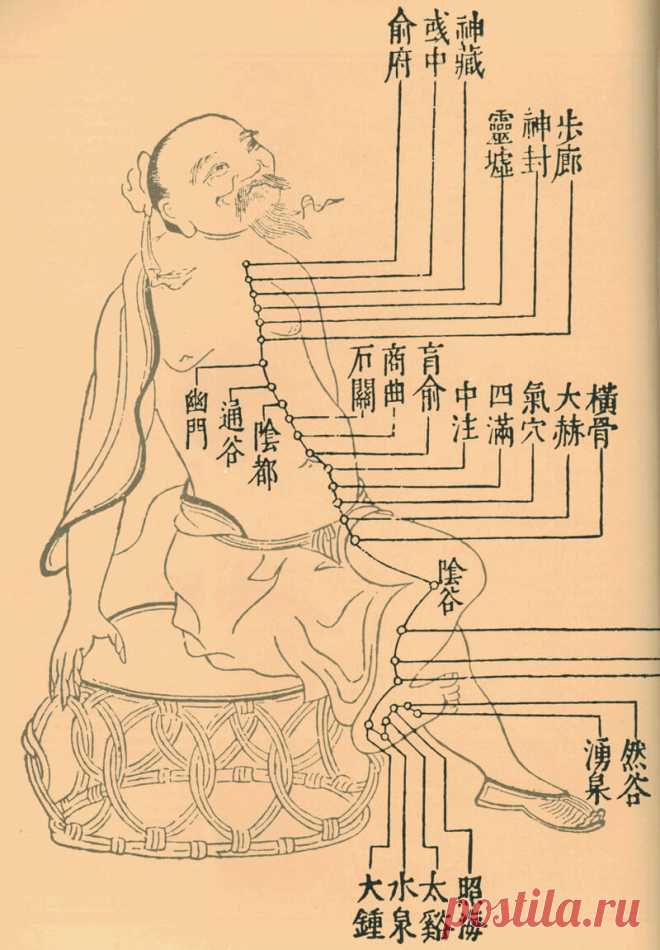 神藏
彧中
俞府
步廊
神封
靈墟
橫骨
大赫
氣穴
四滿
中注
肓俞
商曲
石關
陰都
通谷
幽門
陰谷
然谷
湧泉
照海
太谿
水泉
大鍾
postila.ru